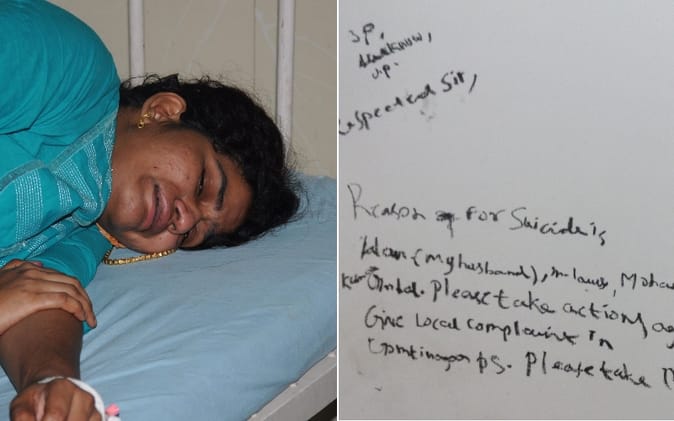 S.P.,
Lucknow,
U.P.
Respected Sir,
Reason of For Suicide is
(my husband), in laws,
Please take action
Give Local complaint in
Gomtinagar P.S. Please take